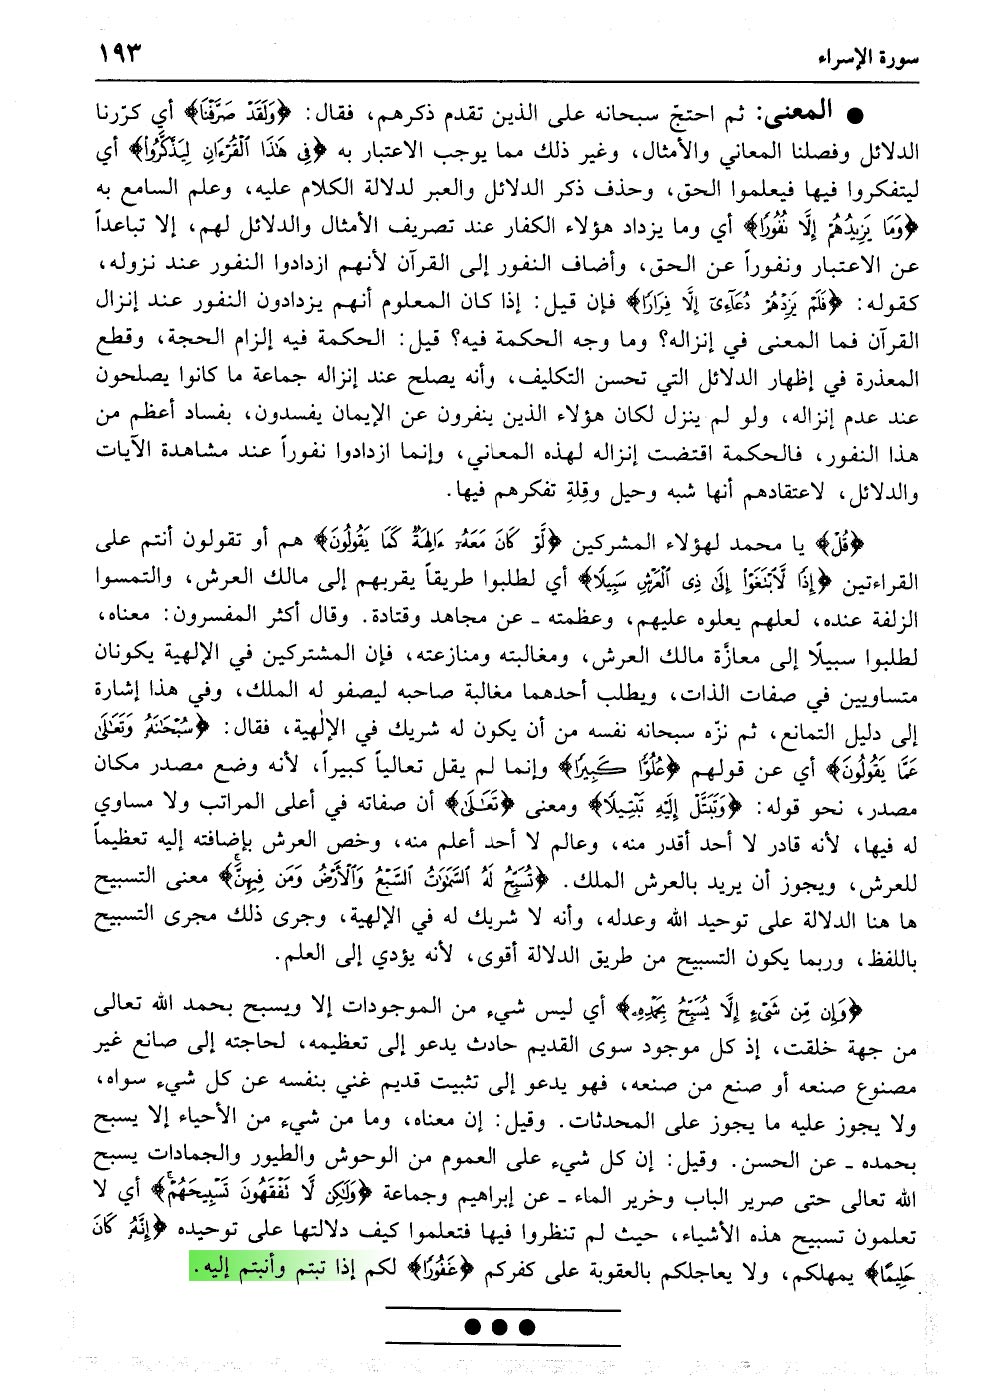 سورة الإسراء ١٩٣
● المعنى: ثم احتجّ سبحانه على الذين تقدم ذكرهم، فقال: ﴿وَلَقَدْ صَرَّفْنَا﴾ أي كرّرنا
الدلائل وفصلنا المعاني والأمثال، وغير ذلك مما يوجب الاعتبار به ﴿فِى هَٰذَا ٱلْقُرْءَانِ لِيَذَّكَّرُوا۟﴾ أي
ليتفكروا فيها فيعلموا الحق، وحذف ذكر الدلائل والعبر لدلالة الكلام عليه، وعلم السامع به
﴿وَمَا يَزِيدُهُمْ إِلَّا نُفُورًا﴾ أي وما يزداد هؤلاء الكفار عند تصريف الأمثال والدلائل لهم، إلا تباعداً
عن الاعتبار ونفوراً عن الحق، وأضاف النفور إلى القرآن لأنهم ازدادوا النفور عند نزوله،
كقوله: ﴿فَلَمْ يَزِدْهُمْ دُعَآءِىٓ إِلَّا فِرَارًا﴾ فإن قيل: إذا كان المعلوم أنهم يزدادون النفور عند إنزال
القرآن فما المعنى في إنزاله؟ وما وجه الحكمة فيه؟ قيل: الحكمة فيه إلزام الحجة، وقطع
المعذرة في إظهار الدلائل التي تحسن التكليف، وأنه يصلح عند إنزاله جماعة ما كانوا يصلحون
عند عدم إنزاله، ولو لم ينزل لكان هؤلاء الذين ينفرون عن الإيمان يفسدون، بفساد أعظم من
هذا النفور، فالحكمة اقتضت إنزاله لهذه المعاني، وإنما ازدادوا نفوراً عند مشاهدة الآيات
والدلائل، لاعتقادهم أنها شبه وحيل وقلةِ تفكرهم فيها.
﴿قُل﴾ يا محمد لهؤلاء المشركين ﴿لَّوْ كَانَ مَعَهُۥٓ ءَالِهَةٌ كَمَا يَقُولُونَ﴾ هم أو تقولون أنتم على
القراءتين ﴿إِذًا لَّٱبْتَغَوْا۟ إِلَىٰ ذِى ٱلْعَرْشِ سَبِيلًا﴾ أي لطلبوا طريقاً يقربهم إلى مالك العرش، والتمسوا
الزلفة عنده، لعلهم يعلوه عليهم، وعظمته ـ عن مجاهد وقتادة. وقال أكثر المفسرون: معناه،
لطلبوا سبيلًا إلى معازَّة مالك العرش، ومغالبته ومنازعته، فإن المشتركين في الإلهية يكونان
متساويين في صفات الذات، ويطلب أحدهما مغالبة صاحبه ليصفو له الملك، وفي هذا إشارة
إلى دليل التمانع، ثم نزّه سبحانه نفسه من أن يكون له شريك في الإلٰهية، فقال: ﴿سُبْحَٰنَهُۥ وَتَعَٰلَىٰ
عَمَّا يَقُولُونَ﴾ أي عن قولهم ﴿عُلُوًّا كَبِيرًا﴾ وإنما لم يقل تعالياً كبيراً، لأنه وضع مصدر مكان
مصدر، نحو قوله: ﴿وَتَبَتَّلْ إِلَيْهِ تَبْتِيلًا﴾ ومعنى ﴿تَعَٰلَىٰ﴾ أن صفاته في أعلى المراتب ولا مساوي
له فيها، لأنه قادر لا أحد أقدر منه، وعالم لا أحد أعلم منه، وخص العرش بإضافته إليه تعظيماً
للعرش، ويجوز أن يريد بالعرش الملك. ﴿تُسَبِّحُ لَهُ ٱلسَّمَٰوَٰتُ ٱلسَّبْعُ وَٱلْأَرْضُ وَمَن فِيهِنَّ﴾ معنى التسبيح
ها هنا الدلالة على توحيد الله وعدله، وأنه لا شريك له في الإلهية، وجرى ذلك مجرى التسبيح
باللفظ، وربما يكون التسبيح من طريق الدلالة أقوى، لأنه يؤدي إلى العلم.
﴿وَإِن مِّن شَىْءٍ إِلَّا يُسَبِّحُ بِحَمْدِهِۦ﴾ أي ليس شيء من الموجودات إلا ويسبح بحمد الله تعالى
من جهة خلقت، إذ كل موجود سوى القديم حادث يدعو إلى تعظيمه، لحاجته إلى صانع غير
مصنوع صنعه أو صنع من صنعه، فهو يدعو إلى تثبيت قديم غني بنفسه عن كل شيء سواه،
ولا يجوز عليه ما يجوز على المحدثات. وقيل: إن معناه، وما من شيء من الأحياء إلا يسبح
بحمده ـ عن الحسن. وقيل: إن كل شيء على العموم من الوحوش والطيور والجمادات يسبح
الله تعالى حتى صرير الباب وخرير الماء ـ عن إبراهيم وجماعة ﴿وَلَٰكِن لَّا تَفْقَهُونَ تَسْبِيحَهُمْ﴾ أي لا
تعلمون تسبيح هذه الأشياء، حيث لم تنظروا فيها فتعلموا كيف دلالتها على توحيده ﴿إِنَّهُۥ كَانَ
حَلِيمًا﴾ يمهلكم، ولا يعاجلكم بالعقوبة على كفركم ﴿غَفُورًا﴾ لكم إذا تبتم وأنبتم إليه.